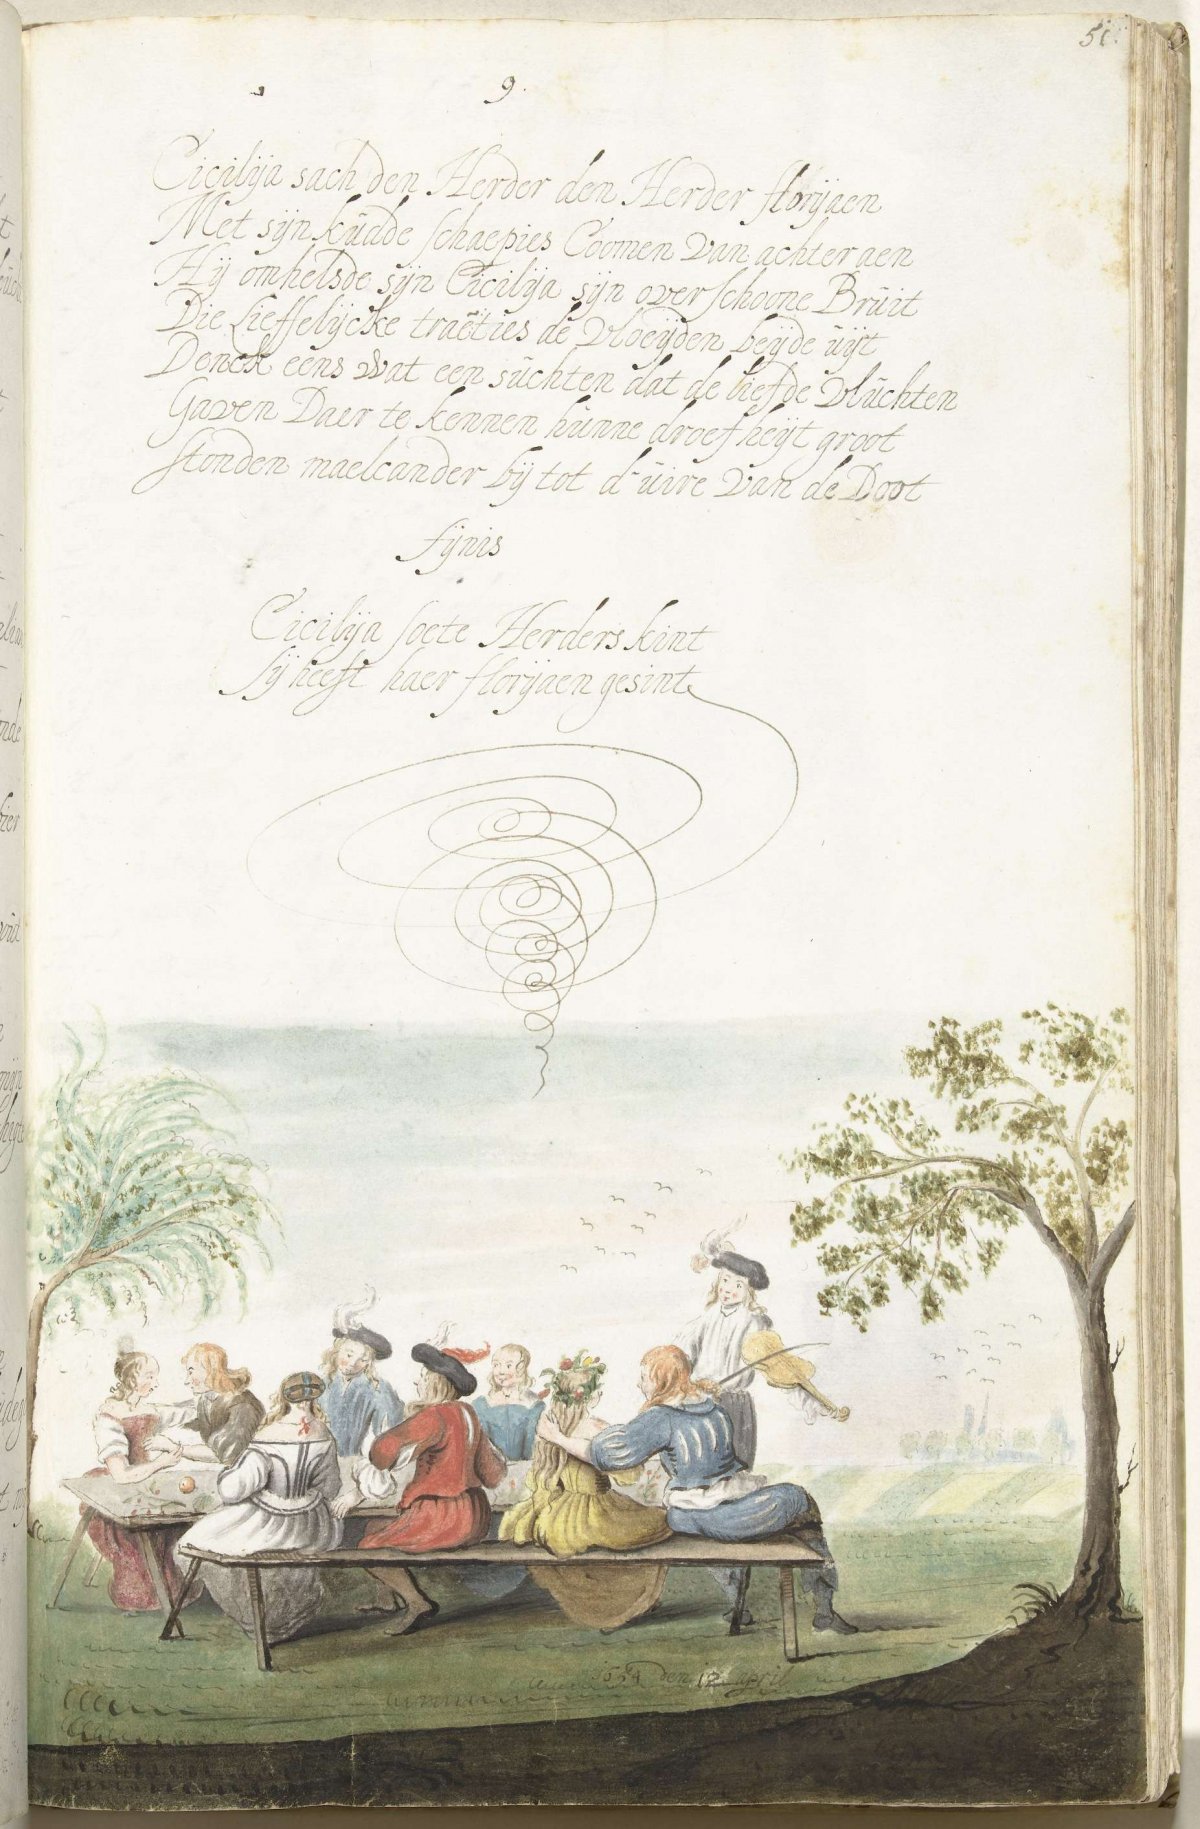 51
9.
Cicilija sach den Herder den Herder florijaen
Met sijn kudde schaepies Coomen van achter aen
Hij omhelsde sijn Cicilija sijn over schoone Bruit
Die Lieffelijcke traeties de vloeijden beijde uijt
Denck eens wat een suchten dat de liefde vluchten
Gaven Daer te kennen hunne droef heijt groot
stonden maelcander bij tot d'uire van de Doot
fijnis
Cicilija soete Herders kint
sij heeft haer florijaen gesint
1654 den 12 april